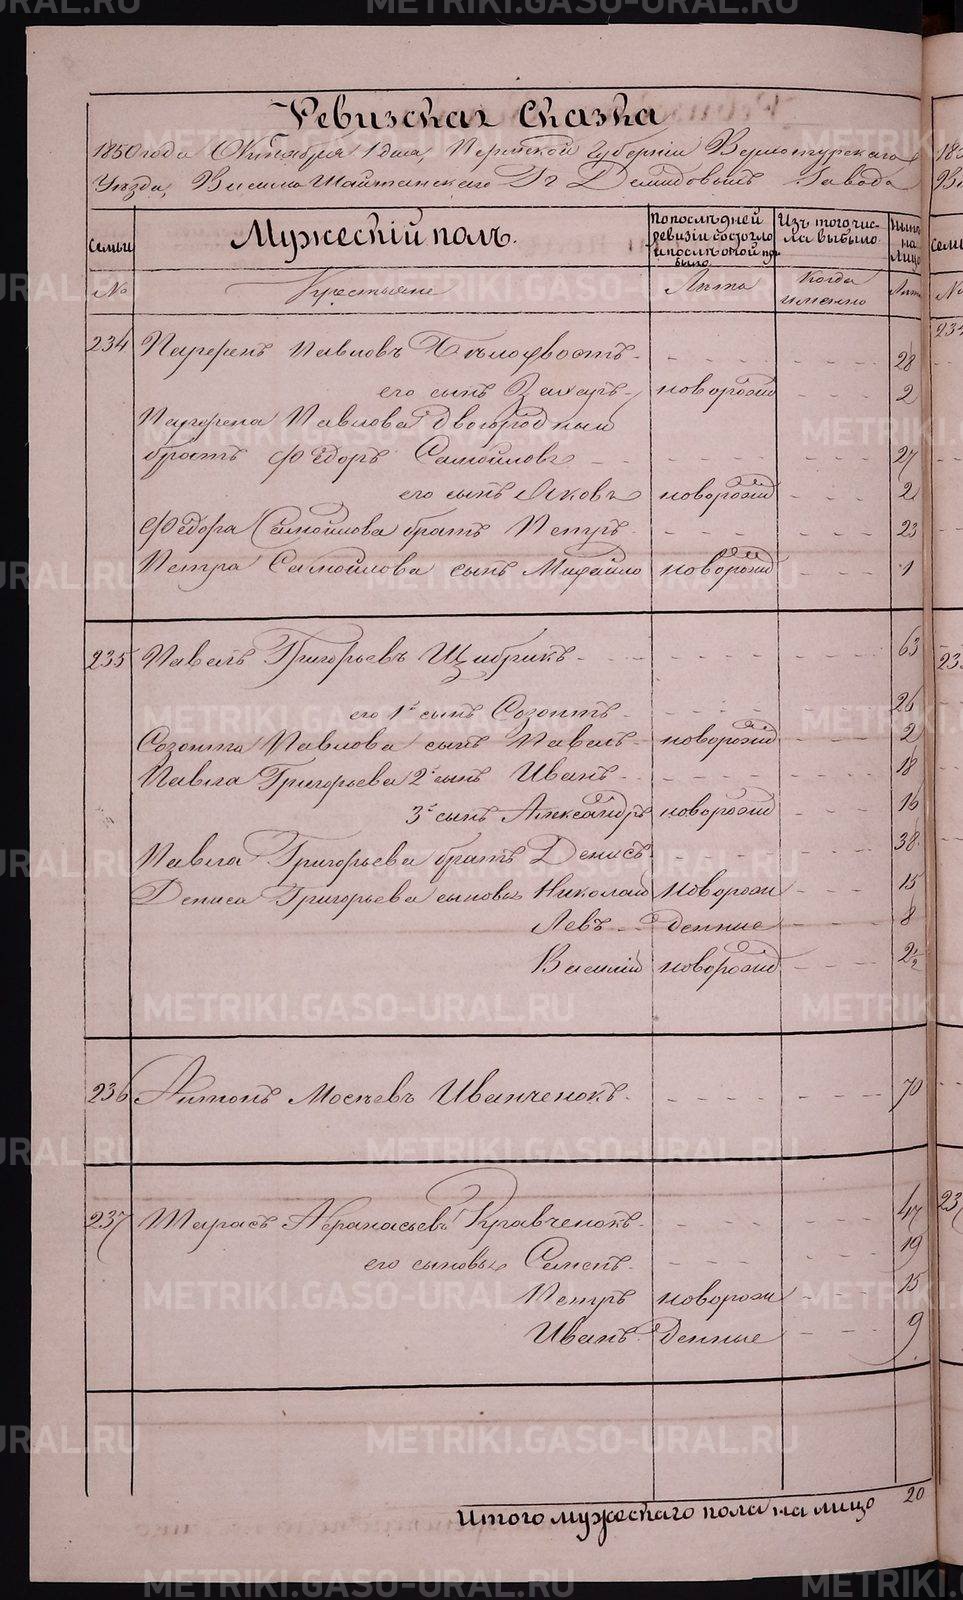 Ревизская Сказка
1850 года Октября 1 дня, Пермской Губернiи Верхотурскаго
Уѣзда, Висимо Шайтанскаго Гг Демидовыхъ Завода
Семьи
Мужескiй полъ.
По послѣдней
ревизiи состояло
и послѣ оной при
было
Изъ того чис-
ла выбыло
Нынѣ
на
лицо
№
Крестьяне
Лѣта
Когда
именно
Лѣта
234 Парфенъ Павловъ Бѣлофвостъ 28
его сынъ Захаръ новорожд 2
Парфена Павлова двоюродный
братъ Фёдоръ Самойловъ 27
его сынъ Яковъ новорожд 2
Фёдора Самойлова братъ Петръ 23
Петра Самойлова сынъ Михайло новорожд 1
235 Павелъ Григорьевъ Щибрикъ 63
его 1й сынъ Созонтъ 26
Созонта Павлова сынъ Павелъ новорожд 2
Павла Григорьева 2й сынъ Иванъ 18
3й сынъ Александръ новорожд 16
Павла Григорьева братъ Денисъ 38
Дениса Григорьева сыновья Николай новорож 15
Левъ денные 8
Василiй новорожд 2 1/2
236 Антонъ Мосѣевъ Иванченокъ 70
237 Тарасъ Афанасьевъ Кравченокъ 47
его сыновья Семенъ 19
Петръ новорож 15
Иванъ денные 9
Итого мужескаго пола на лицо 20
METRIKI.GASO-URAL.RU